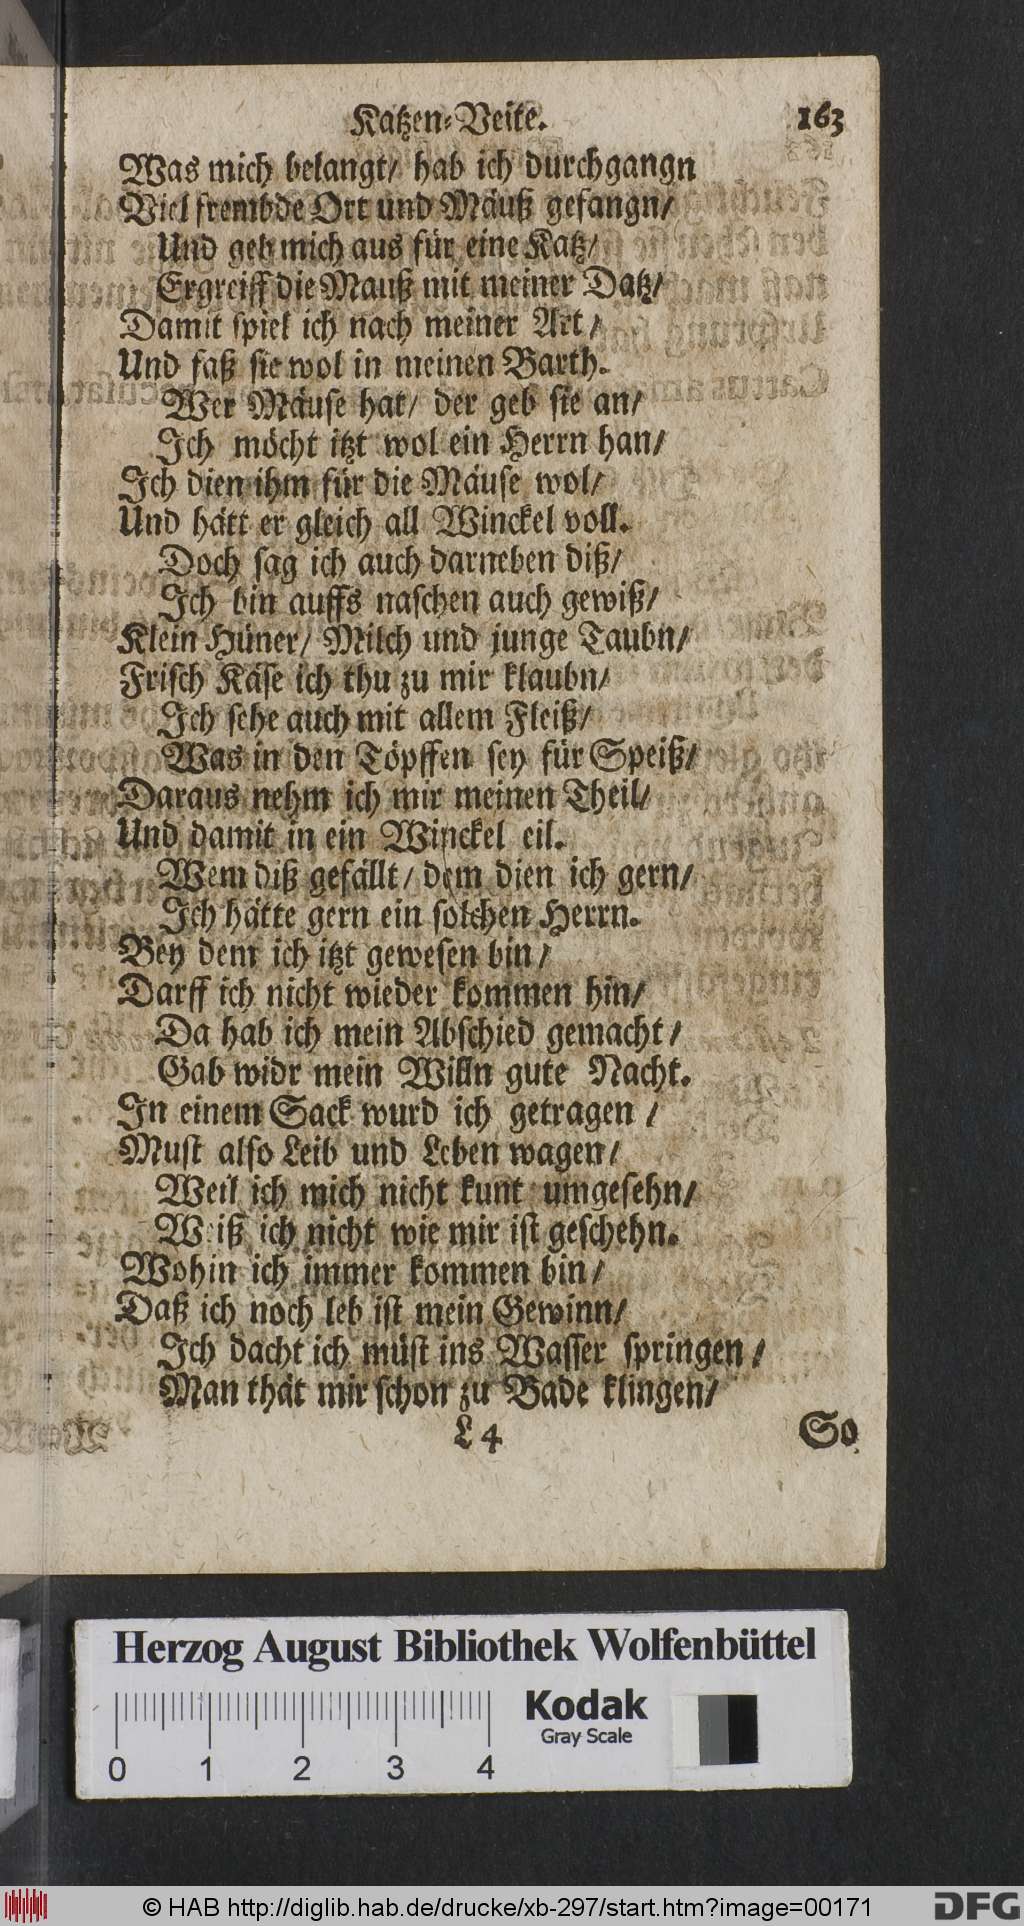 Katzen-Veite. 163
Was mich belangt/ hab ich durchgangn
Viel frembde Ort und Mäuß gefangn/
Und geb mich aus für eine Katz/
Ergreiff die Mauß mit meiner Datz/
Damit spiel ich nach meiner Art/
Und faß sie wol in meinen Barth.
Wer Mäuse hat/ der geb sie an/
Ich möcht itzt wol ein Herrn han/
Ich dien ihm für die Mäuse wol/
Und hätt er gleich all Winckel voll.
Doch sag ich auch darneben diß/
Ich bin auffs naschen auch gewiß/
Klein Hüner/ Milch und junge Taubn/
Frisch Käse ich thu zu mir klaubn/
Ich sehe auch mit allem Fleiß/
Was in den Töpffen sey für Speiß/
Daraus nehm ich mir meinen Theil/
Und damit in ein Winckel eil.
Wem diß gefällt/ dem dien ich gern/
Ich hätte gern ein solchen Herrn.
Bey dem ich itzt gewesen bin/
Darff ich nicht wieder kommen hin/
Da hab ich mein Abschied gemacht/
Gab widr mein Willn gute Nacht.
In einem Sack wurd ich getragen/
Must also Leib und Leben wagen/
Weil ich mich nicht kunt umgesehn/
Weiß ich nicht wie mir ist geschehn.
Wohin ich immer kommen bin/
Daß ich noch leb ist mein Gewinn/
Ich dacht ich müst ins Wasser springen/
Man thät mir schon zu Bade klingen/
L 4 So
Herzog August Bibliothek Wolfenbüttel
Kodak
Gray Scale
0 1 2 3 4
© HAB http://diglib.hab.de/drucke/xb-297/start.htm?image=00171
DFG